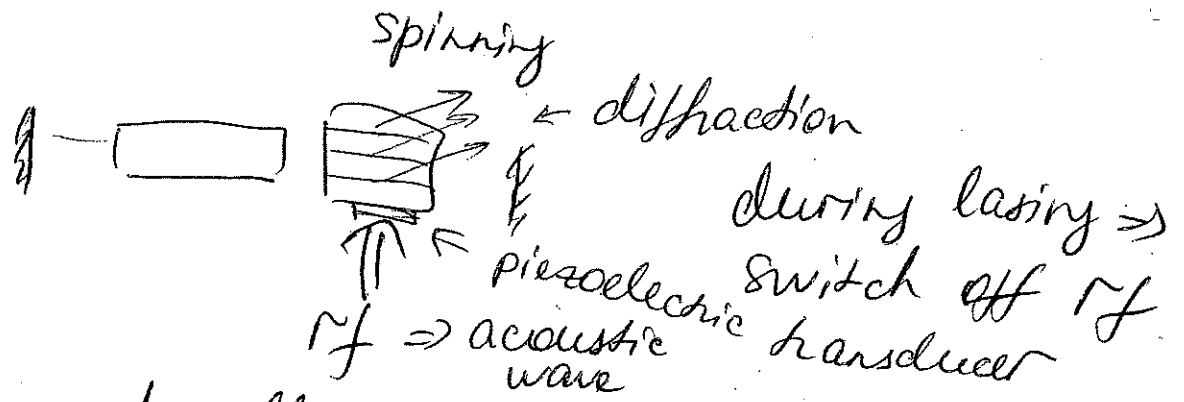 spinning
← diffraction
during lasing ⇒
switch off rf
piezoelectric transducer
rf ⇒ acoustic
wave